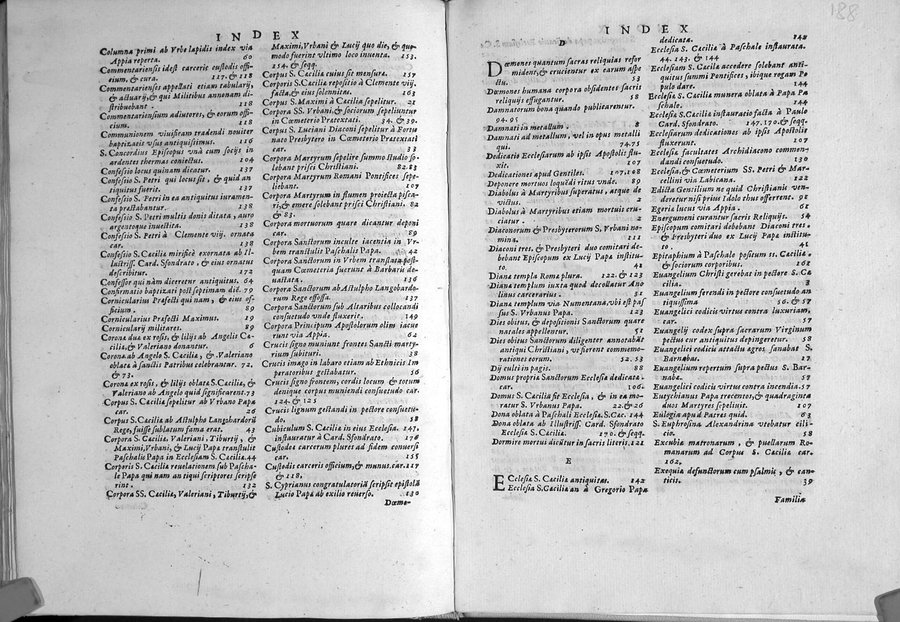 INDEX
Columna primi ab Vrbe lapidis index via
Appia reperta. 60
Commentariensis idest carceris custodis offi-
cium, & cura. 117. & 118
Commentariensis appellati etiam tabularij,
& actuarij, & qui Militibus annonam di-
stribuebant. 118
Commentariensium adiutores, & eorum offi-
cium. 118
Communionem viuificam tradendi nouiter
baptizatis vsus antiquissimus. 116
S. Concordius Episcopus vnà cum socijs in
ardentes thermas coniectus. 104
Confessio locus quinam dicatur. 137
Confessio S. Petri qui locus sit, & quid an
tiquitus fuerit. 137
Confessio S. Petri in ea antiquitus iuramen-
ta præstabantur. 138
Confessio S. Petri multis donis ditata, auro
argentoque inuestita. 138
Confessio S. Petri à Clemente viij. ornata
car. 138
Confessio S. Cæciliæ mirificè exornata ab Il-
lustriss. Card. Sfondrato, & eius ornatus
describitur. 172
Confessor qui nam diceretur antiquitus. 64
Confirmatio baptizati post septimam diē. 79
Cornicularius Præfecti qui nam, & eius of-
ficium. 89
Cornicularius Præfecti Maximus. 19
Cornicularij militares. 89
Corona dua ex rosis, & lilijs ab Angelis Cæ-
cilia, & Valeriano donantur. 6
Corona ab Angelo S. Cæcilia, & Valeriano
oblata à sanctis Patribus celebrantur. 72.
& 73.
Corona ex rosis, & lilijs oblata S. Cæcilia, &
Valeriano ab Angelo quid significarent. 73
Corpus S. Cæcilia sepelitur ab Vrbano Papa
car. 26
Corpus S. Cæcilia ab Astulpho Langobardorū
Rege, fuisse sublatum fama erat. 43
Corpora S. Cæcilia, Valeriani, Tiburtij, &
Maximi, Vrbani, & Lucij Papæ transtulit
Paschalis Papa in Ecclesiam S. Cæcilia. 44
Corporis S. Cæcilia reuelationem sub Pascha-
le Papa qui nam antiqui scriptores scripse
rint. 132
Corpora SS. Cæcilia, Valeriani, Tiburtij, &
Maximi, Vrbani & Lucij quo die, & quo-
modo fuerint vltimo loco inuenta. 153.
154. & seqq.
Corpus S. Cæcilia cuius sit mensura. 157
Corporis S. Cæcilia repositio à Clemente viij.
facta, & eius solennitas. 163
Corpus S. Maximi à Cæcilia sepelitur. 21
Corpora SS. Vrbani, & sociorum sepeliuntur
in Cœmeterio Prætextati. 34. & 39.
Corpus S. Luciani Diaconi sepelitur à Fortu
nato Presbytero in Cœmeterio Prætextati
car. 32
Corpora Martyrum sepelire summo studio so-
lebant prisci Christiani. 82. 83
Corpora Martyrum Romani Pontifices sepe-
liebant. 107
Corpora Martyrum in flumen proiecta pisca-
ri, & emere solebant prisci Christiani. 82
& 83.
Corpora mortuorum quare dicantur deponi
car. 89
Corpora Sanctorum inculte iacentia in Vr-
bem transtulit Paschalis Papa. 42
Corpora Sanctorum in Vrbem translata post-
quam Cœmeteria fuerunt à Barbaris de-
uastata. 136
Corpora Sanctorum ab Astulpho Langobardo-
rum Rege effossa. 137
Corpora Sanctorum sub Altaribus collocandi
consuetudo vnde fluxerit. 149
Corpora Principum Apostolorum olim iacue
runt via Appia. 62
Crucis signo muniunt frontes Sancti marty-
rium subituri. 38
Crucis imago in labaro etiam ab Ethnicis Im
peratoribus gestabatur. 56
Crucis signo frontem, cordis locum & totum
denique corpus muniendi consuetudo car.
124. & 125
Crucis lignum gestandi in pectore consuetu-
do. 58
Cubiculum S. Cæcilia in eius Ecclesia. 147.
instauratur à Card. Sfondrato. 176
Custodes carcerum plures ad fidem conuersi
car. 155
Custodis carceris officium, & munus. car. 117
& 118.
S. Cyprianus congratulatoriā scripsit epistolā
Lucio Papæ ab exilio reuerso. 130
Dæmo-
188
INDEX
D
Dæmones quantum sacras reliquias refor
mident, & crucientur ex earum aspe
ctu. 53
Dæmones humana corpora obsidentes sacris
reliquijs effugantur. 58
Damnatorum bona quando publicarentur.
94. 95
Damnati in metallum. 8
Damnati ad metallum, vel in opus metalli
qui. 74. 75
Dedicatio Ecclesiarum ab ipsis Apostolis flu-
xit. 107
Dedicationes apud Gentiles. 107. 108
Deponere mortuos loquēdi ritus vnde. 89
Diabolus à Martyribus superatur, atque de
victus. 2
Diabolus à Martyribus etiam mortuis cruc-
ciatur. 2
Diaconorum & Presbyterorum S. Vrbani no-
mina. 211
Diaconi tres, & Presbyteri duo comitari de-
bebant Episcopum ex Lucij Papæ institu-
to. 41
Diana templa Roma plura. 122. & 123
Dianæ templum iuxta quod decollatur Ano
linus carcerarius. 51
Diana templum via Numentana, vbi est pas
sus S. Vrbanus Papa. 123
Dies obitus, & depositionis Sanctorum quare
natales appellentur. 51
Dies obitus Sanctorum diligenter annotabāt
antiqui Christiani, vt fierent commemo-
rationes eorum. 52. 53
Dij cultí in pagis. 88
Domus propria Sanctorum Ecclesia dedicata.
car. 106.
Domus S. Cæcilia fit Ecclesia, & in ea mo-
ratur S. Vrbanus Papa. 22. & 26
Dona oblata à Paschali Ecclesia S. Cæc. 144
Dona oblata ab Illustriss. Card. Sfondrato
Ecclesiæ S. Cæcilia. 190. & seqq.
Dormire mortui dicūtur in sacris literis. 121
E
Ecclesia S. Cæcilia antiquitas. 142
Ecclesia S. Cæcilia an à Gregorio Papa
dedicata. 142
Ecclesia S. Cæcilia à Paschale instaurata.
44. 143. & 144
Ecclesiam S. Cæcilia accedere solebant anti-
quitus summi Pontifices, ibique rogam Po
pulo dare. 144
Ecclesia S. Cæcilia munera oblata à Papa Pa
schale. 144
Ecclesia S. Cæcilia instauratio facta à Paulo
Card. Sfondrato. 147. 190. & seqq.
Ecclesiarum dedicationes ab ipsis Apostolis
fluxerunt. 107
Ecclesiæ facultates Archidiacono commen-
dandi consuetudo. 130
Ecclesia, & Cœmeterium SS. Petri & Mar-
cellini via Labicana. 122
Edicta Gentilium ne quid Christianis ven-
deretur nisi prius Idolo thus offerrent. 92
Egeria lucus via Appia. 61
Energumeni curantur sacris Reliquijs. 54
Episcopum comitari debebant Diaconi tres,
& Presbyteri duo ex Lucij Papæ institu-
to. 41
Epitaphium à Paschale positum SS. Cæcilia,
& sociorum corporibus. 162
Euangelium Christi gerebat in pectore S. Cæ
cilia. 3
Euangelium ferendi in pectore consuetudo an
tiquissima. 56. & 57
Euangelici codicis virtus contra luxuriam,
car. 57
Euangelij codex supra sacrarum Virginum
pectus cur antiquitus depingeretur. 58
Euangelici codicis attactu agros sanabat S.
Barnabas. 57
Euangelium repertum supra pectus S. Bar-
naba. 57
Euangelici codicis virtus contra incendia. 57
Eutychianus Papa trecentos, & quadraginta
duos Martyres sepeliuit. 107
Eulogia apud Patres quid. 63
S. Euphrosina Alexandrina vtebatur cili-
cio. 58
Excubia matronarum, & puellarum Ro-
manarum ad Corpus S. Cæcilia car.
162.
Exequia defunctorum cum psalmis, & can-
ticis. 39
Familiæ